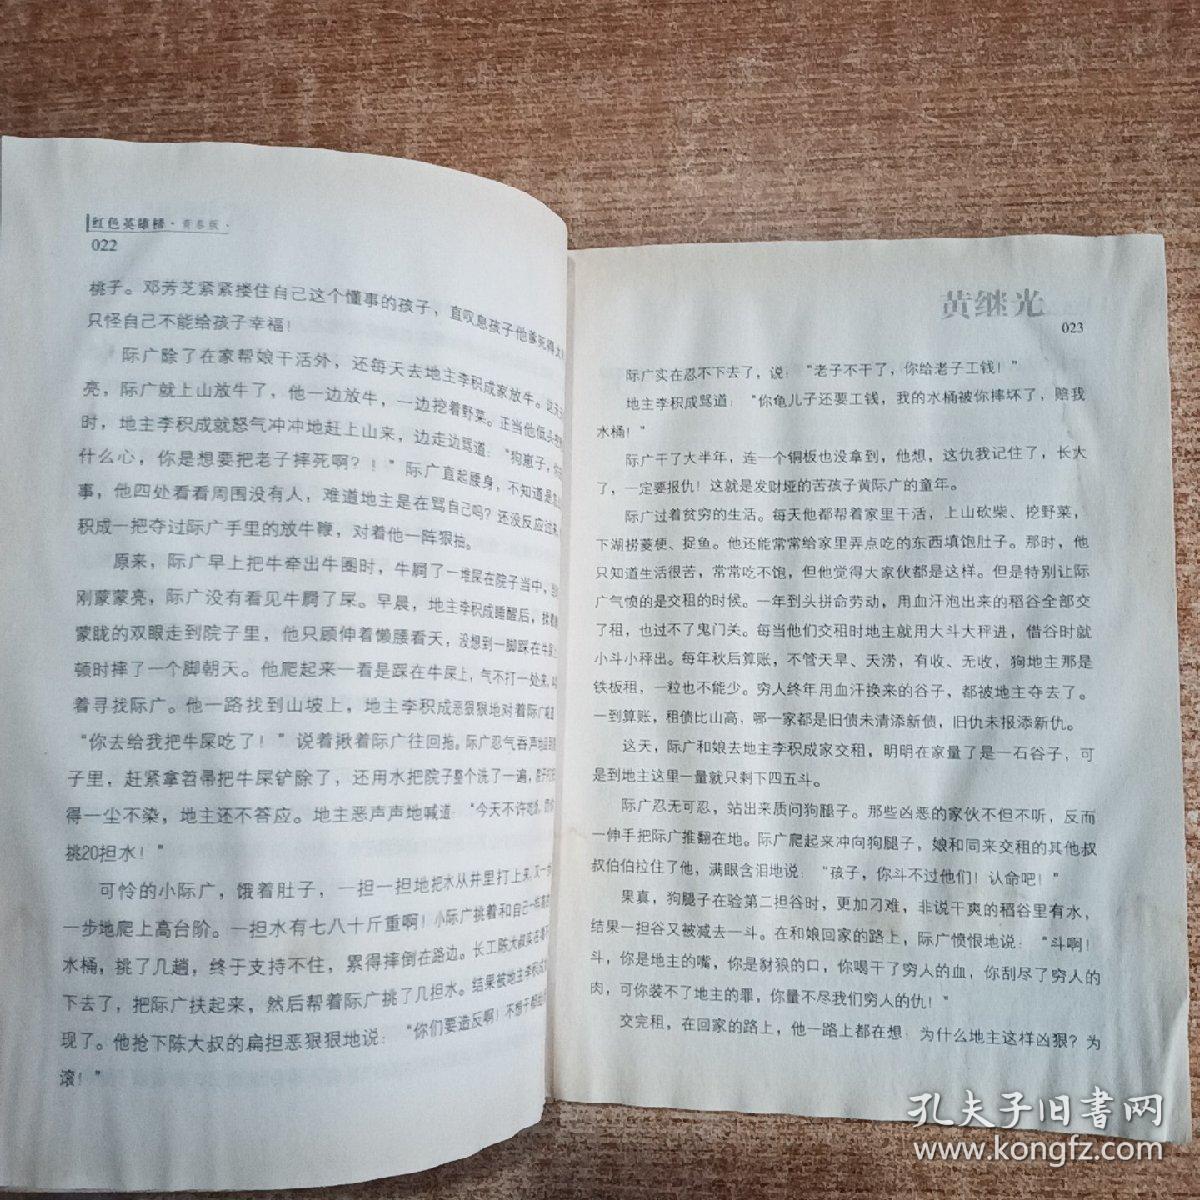 红色英雄榜·青春版·
022
桃子。邓芳芝紧紧搂住自己这个懂事的孩子，直叹息孩子他爹死得太
只怪自己不能给孩子幸福！
际广除了在家帮娘干活外，还每天去地主李积成家放牛。
亮，际广就上山放牛了，他一边放牛，一边挖着野菜。正当他低头
时，地主李积成就怒气冲冲地赶上山来，边走边骂道：“狗崽子，你
什么心，你是想要把老子摔死啊？！”际广直起腰身，不知道是
事，他四处看看周围没有人，难道地主是在骂自己吗？还没反应过来，
积成一把夺过际广手里的放牛鞭，对着他一阵狠抽。
原来，际广早上把牛牵出牛圈时，牛屙了一堆屎在院子当中，
刚蒙蒙亮，际广没有看见牛屙了屎。早晨，地主李积成睡醒后，
蒙眬的双眼走到院子里，他只顾伸着懒腰看天，没想到一脚踩在牛屎上
顿时摔了一个脚朝天。他爬起来一看是踩在牛屎上，气不打一处来，
着寻找际广。他一路找到山坡上，地主李积成恶狠狠地对着际广
“你去给我把牛屎吃了！”说着揪着际广往回拖。际广忍气吞声地
子里，赶紧拿笤帚把牛屎铲除了，还用水把院子整个洗了一遍，
得一尘不染，地主还不答应。地主恶声声地喊道：“今天不许吃饭，
挑20担水！”
可怜的小际广，饿着肚子，一担一担地把水从井里打上来，又一步
一步地爬上高台阶。一担水有七八十斤重啊！小际广挑着和自己一样
水桶，挑了几趟，终于支持不住，累得摔倒在路边。长工陈大叔实在看不
下去了，把际广扶起来，然后帮着际广挑了几担水。结果被地主李积成
现了。他抢下陈大叔的扁担恶狠狠地说：“你们要造反啊！不想干都给
滚！”
黄继光
023
际广实在忍不下去了，说，“老子不干了，你给老子工钱！”
地主李积成骂道：“你龟儿子还要工钱，我的水桶被你摔坏了，赔我
水桶！”
际广干了大半年，连一个铜板也没拿到，他想，这仇我记住了，长大
了，一定要报仇！这就是发财垭的苦孩子黄际广的童年。
际广过着贫穷的生活。每天他都帮着家里干活，上山砍柴、挖野菜，
下湖捞菱梗、捉鱼。他还能常常给家里弄点吃的东西填饱肚子。那时，他
只知道生活很苦，常常吃不饱，但他觉得大家伙都是这样。但是特别让际
广气愤的是交租的时候。一年到头拼命劳动，用血汗泡出来的稻谷全部交
了租，也过不了鬼门关。每当他们交租时地主就用大斗大秤进，借谷时就
小斗小秤出。每年秋后算账，不管天旱、天涝，有收、无收，狗地主那是
铁板租，一粒也不能少。穷人终年用血汗换来的谷子，都被地主夺去了。
一到算账，租债比山高，哪一家都是旧债未清添新债，旧仇未报添新仇。
这天，际广和娘去地主李积成家交租，明明在家量了是一石谷子，可
是到地主这里一量就只剩下四五斗。
际广忍无可忍，站出来质问狗腿子。那些凶恶的家伙不但不听，反而
一伸手把际广推翻在地。际广爬起来冲向狗腿子，娘和同来交租的其他叔
叔伯伯拉住了他，满眼含泪地说：“孩子，你斗不过他们！认命吧！”
果真，狗腿子在验第二担谷时，更加刁难，非说干爽的稻谷里有水，
结果一担谷又被减去一斗。在和娘回家的路上，际广愤恨地说：“斗啊！
斗，你是地主的嘴，你是豺狼的口，你喝干了穷人的血，你刮尽了穷人的
肉，可你装不了地主的罪，你量不尽我们穷人的仇！”
交完租，在回家的路上，他一路上都在想：为什么地主这样凶狠？为
孔夫子旧书网
www.kongfz.com